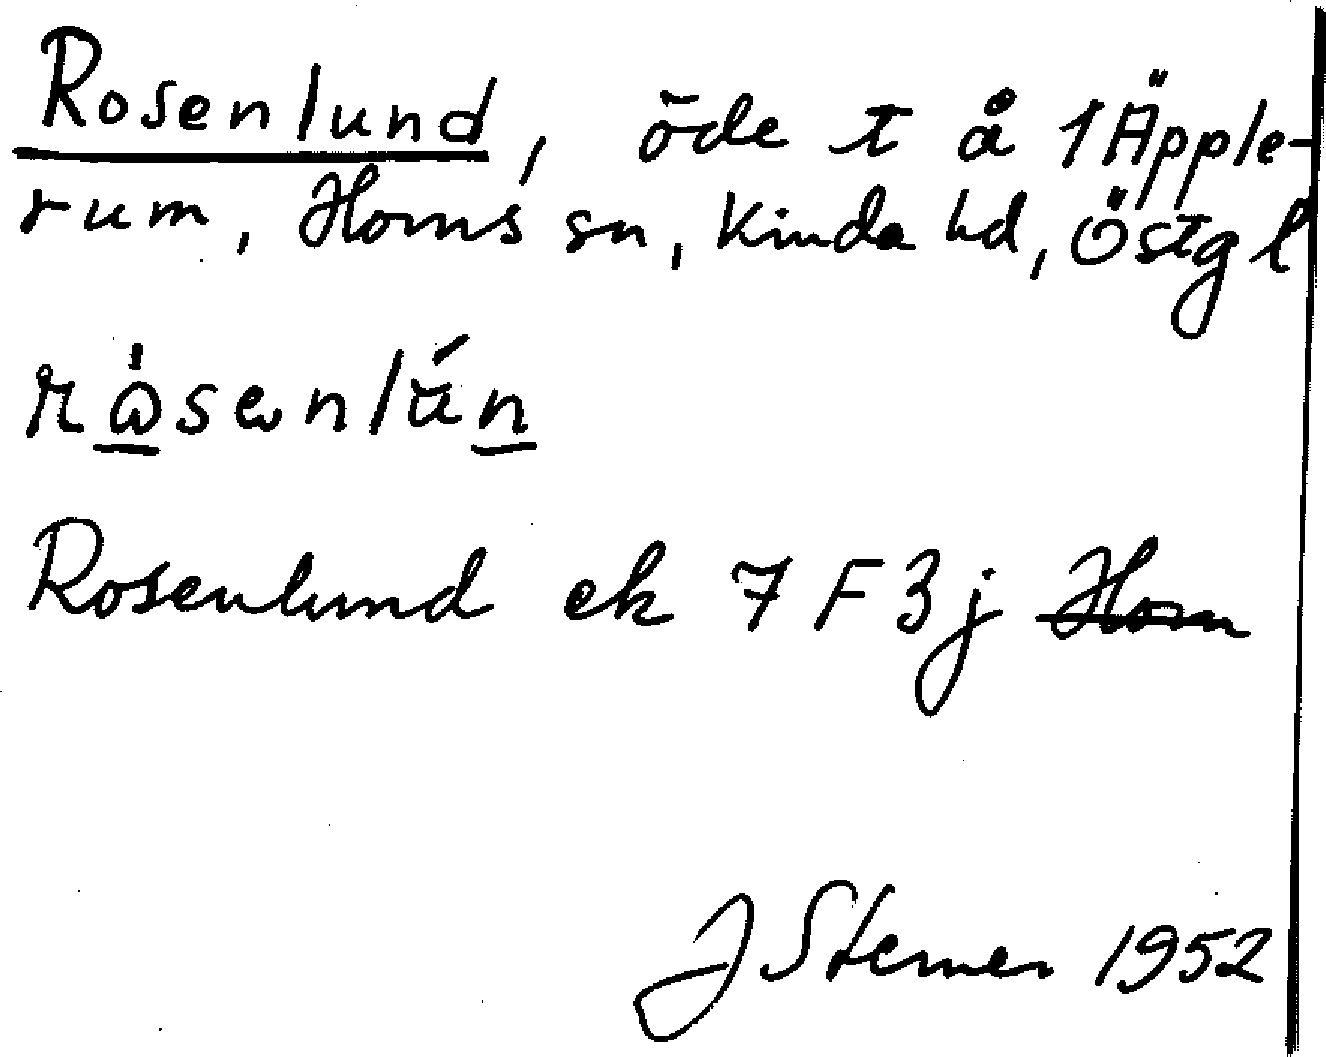 Rosenlund, öde t å 1 Äpple-
rum, Horns sn, Kinda hd, Östgl
Rosenlund ek 7 F 3 j Horn
J Sterner 1952